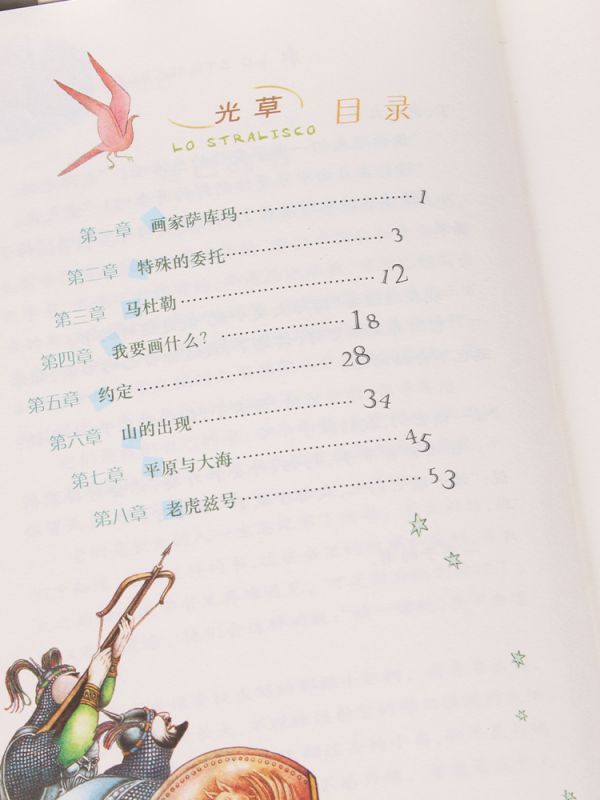 光草 目录
LO STRALISCO
第一章 画家萨库玛……………………1
第二章 特殊的委托……………………3
第三章 马杜勒……………………12
第四章 我要画什么？……………………18
第五章 约定……………………28
第六章 山的出现……………………34
第七章 平原与大海……………………45
第八章 老虎兹号……………………53